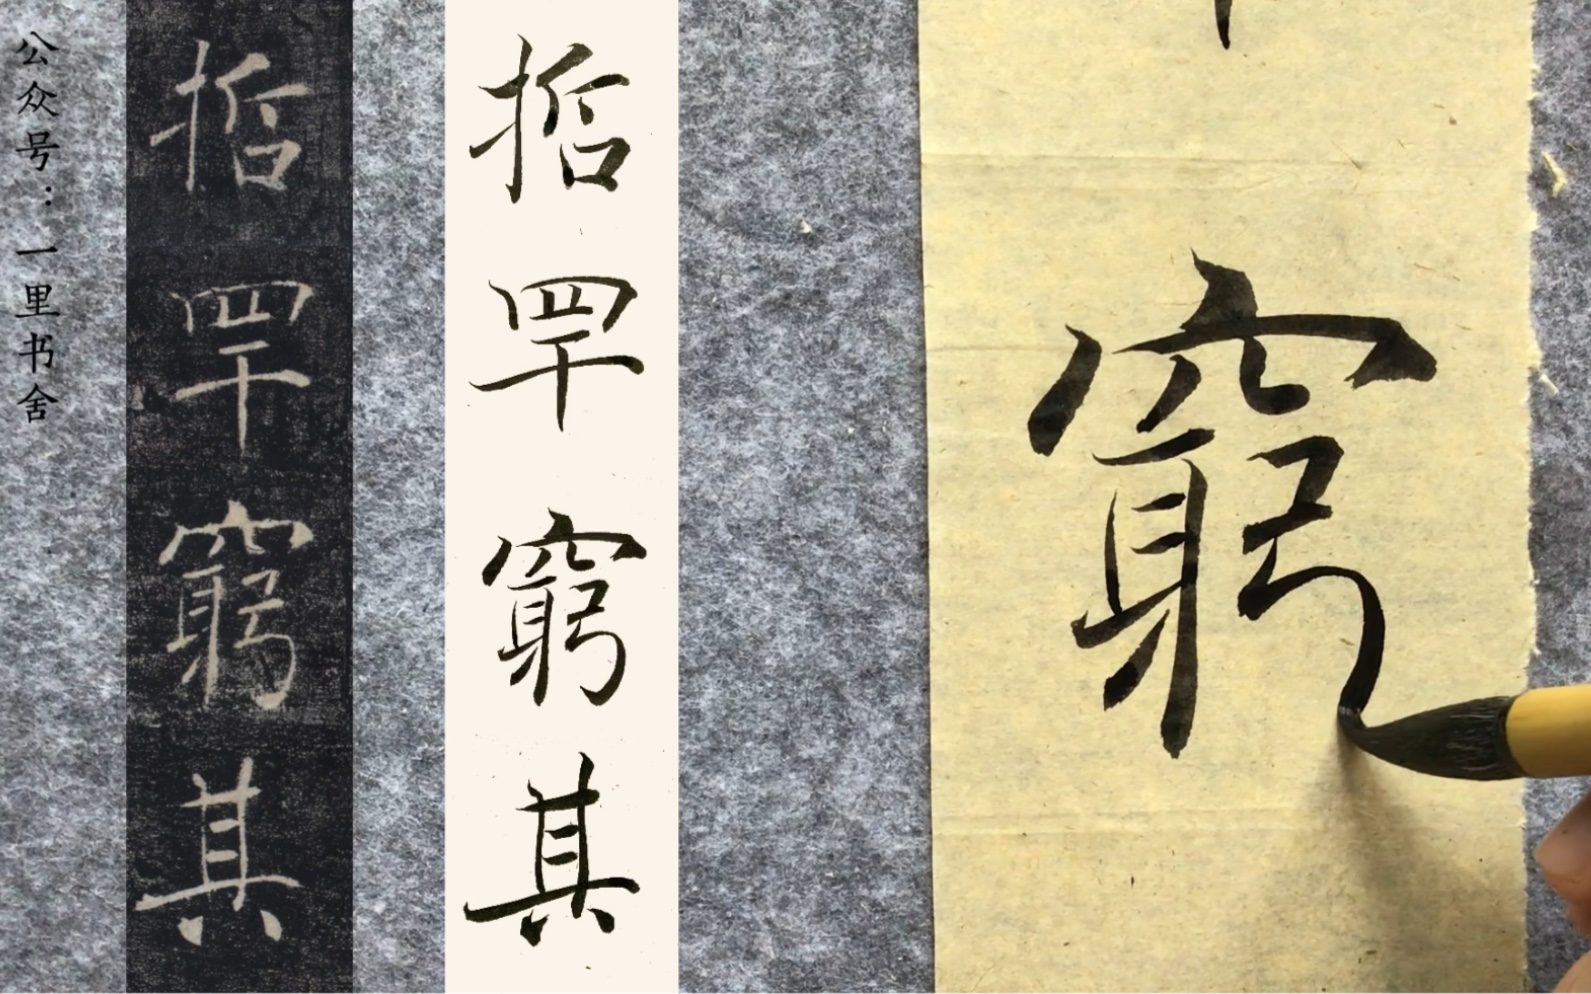 公众号：一里书舍
哲罕窮其
哲罕窮其
窮